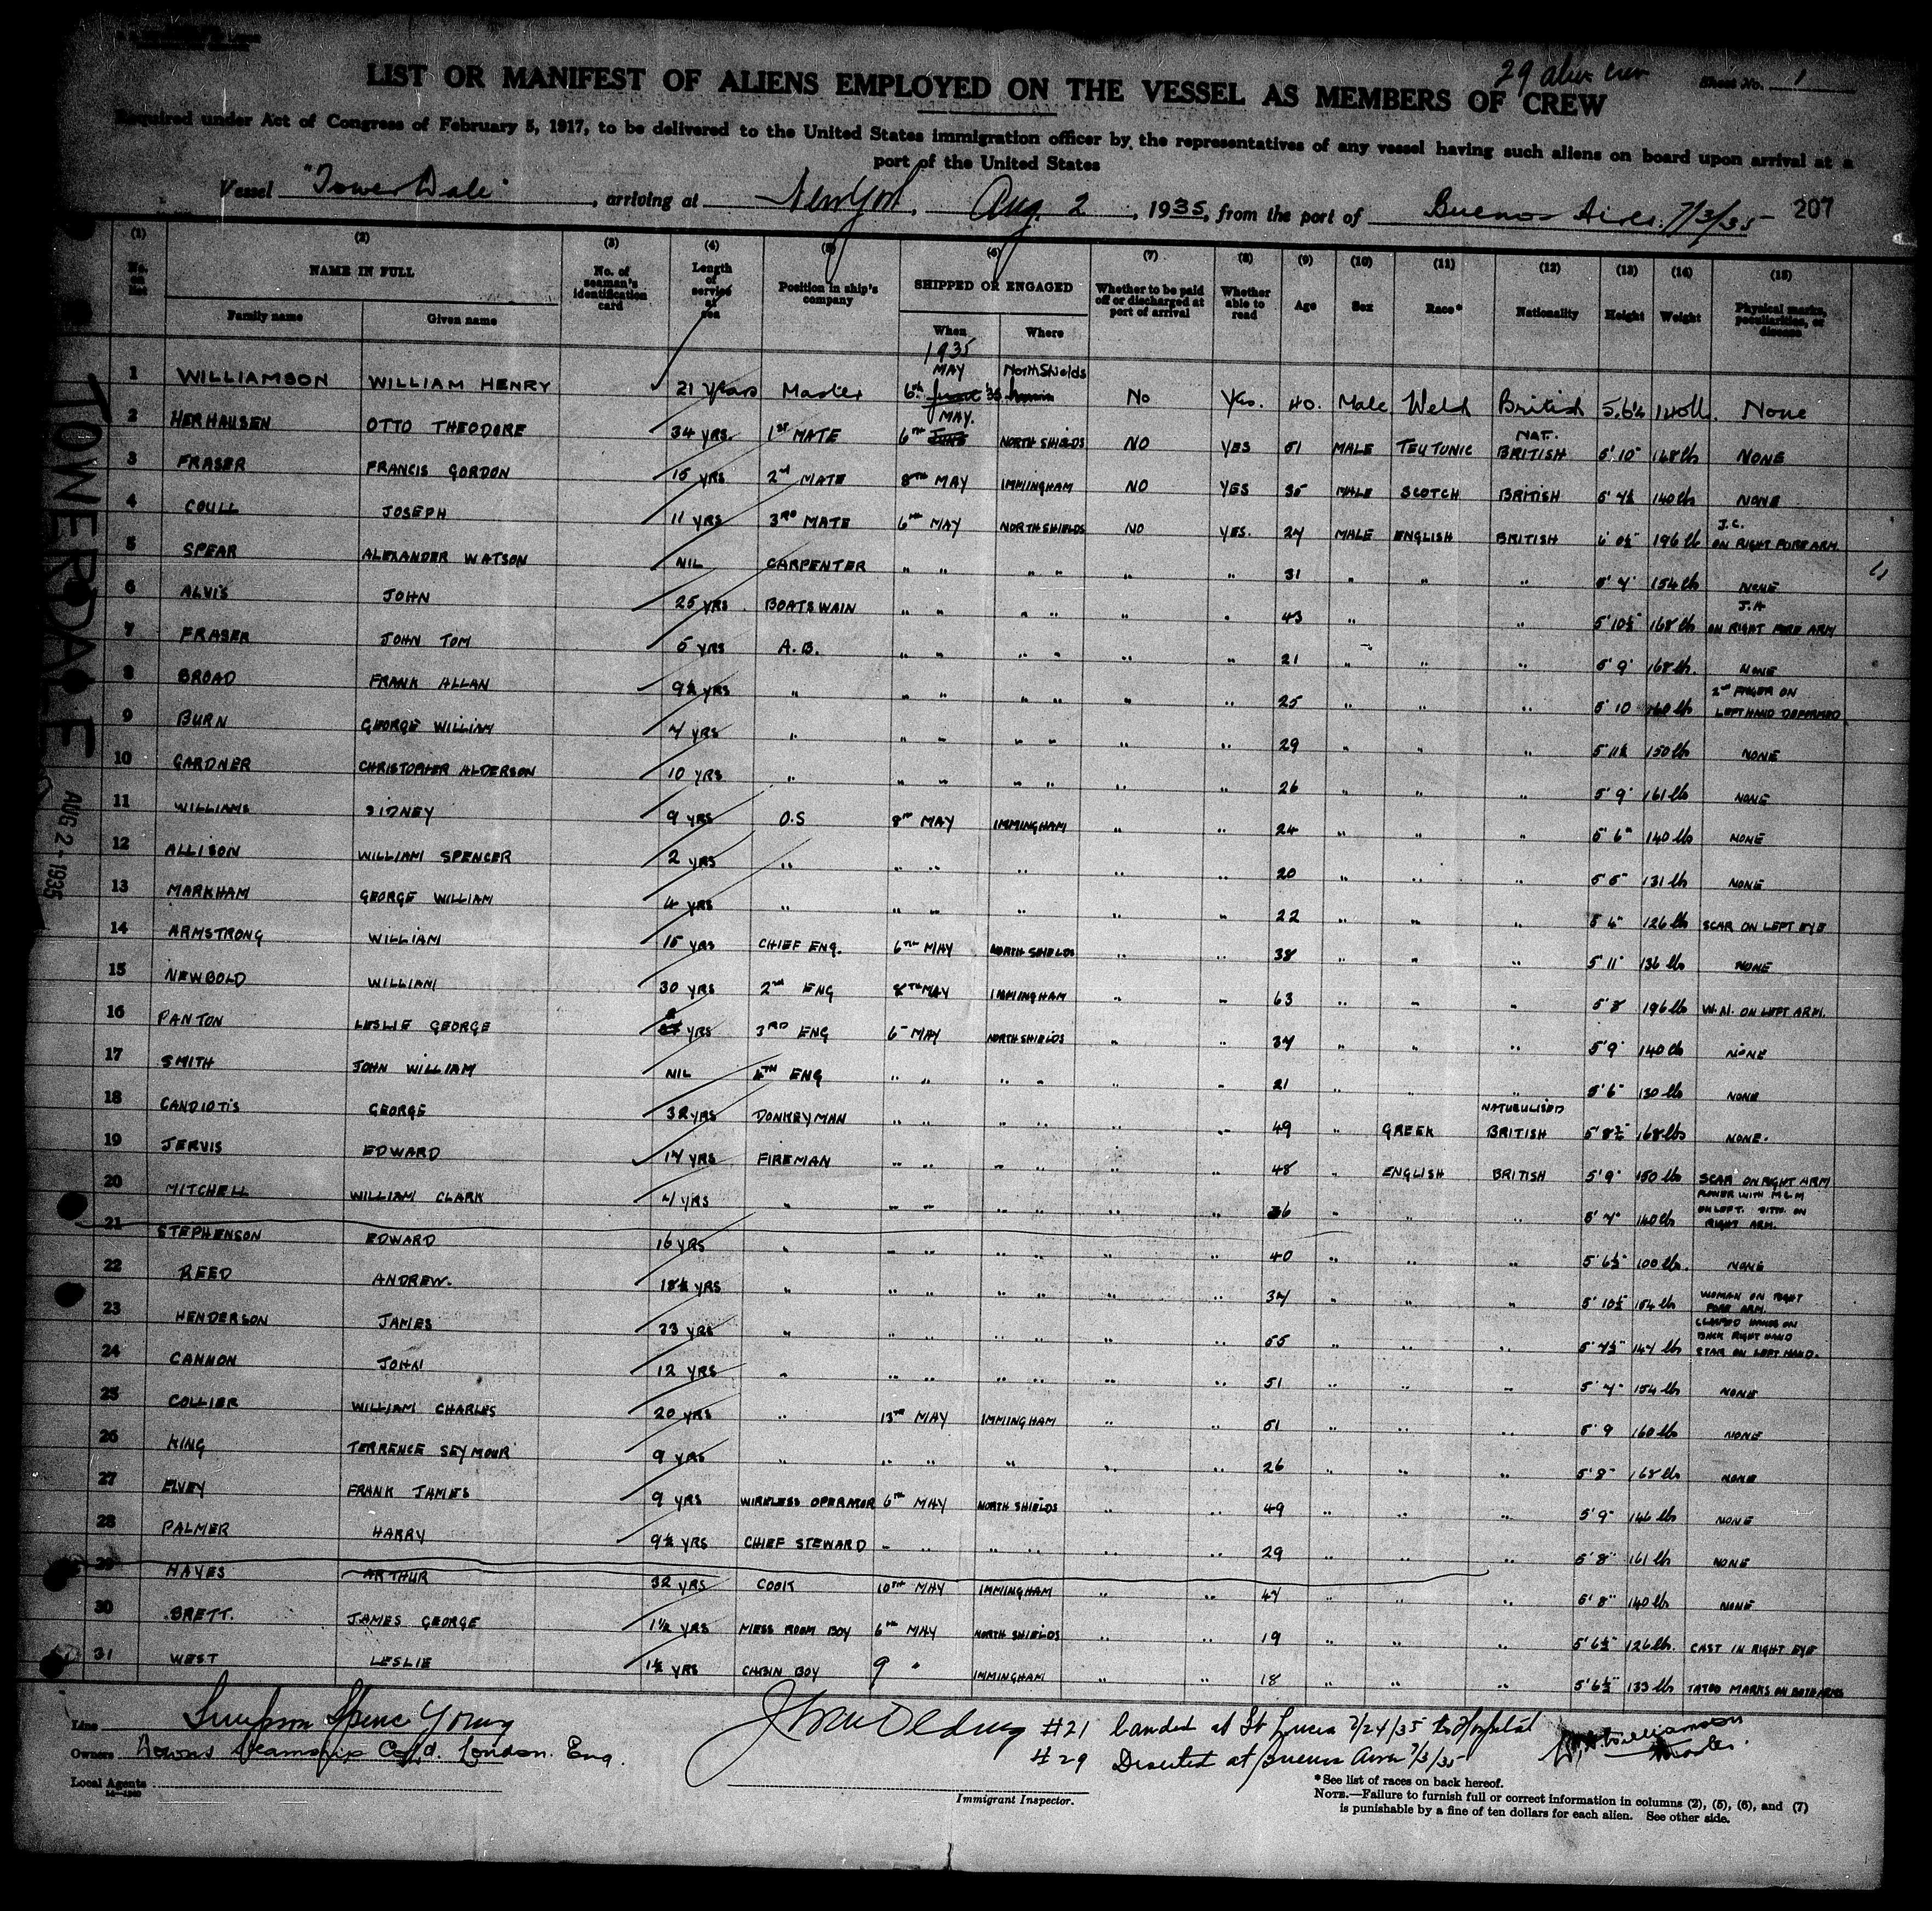 29 alien crew
Sheet No. 1
LIST OR MANIFEST OF ALIENS EMPLOYED ON THE VESSEL AS MEMBERS OF CREW
Required under Act of Congress of February 5, 1917, to be delivered to the United States immigration officer by the representatives of any vessel having such aliens on board upon arrival at a
port of the United States
Vessel "TowerDale", arriving at New York, Aug. 2, 1935, from the port of Buenos Aires. 7/3/35 207
(1) (2) (3) (4) (5) (6) (7) (8) (9) (10) (11) (12) (13) (14) (15)
No. on list NAME IN FULL No. of seaman's identification card Length of service at sea Position in ship's company SHIPPED OR ENGAGED Whether to be paid off or discharged at port of arrival Whether able to read Age Sex Race* Nationality Height Weight Physical marks, peculiarities, or disease
Family name Given name When Where
1935
1 WILLIAMSON WILLIAM HENRY 21 years Master 6th MAY '35 North Shields No Yes. 40. Male Welsh British 5.6½ 140 lb. None
2 HERHAUSEN OTTO THEODORE 34 YRS. 1ST MATE 6TH MAY. NORTH SHIELDS NO YES 51 MALE TEUTONIC NAT. BRITISH 5' 10" 168 lb NONE
3 FRASER FRANCIS GORDON 15 YRS 2nd MATE 8TH MAY IMMINGHAM NO YES 35 MALE SCOTCH BRITISH 5' 7½ 140 lb NONE
4 COULL JOSEPH 11 YRS 3RD MATE 6TH MAY NORTH SHIELDS NO YES. 27 MALE ENGLISH BRITISH 6' 0½" 196 lb J.C. ON RIGHT FORE ARM.
5 SPEAR ALEXANDER WATSON NIL CARPENTER " " " " " " 31 " " " 5' 7" 154 lb NONE
6 ALVIS JOHN 25 YRS. BOATSWAIN " " " " " " 43 " " 5' 10½" 168 lb J.A ON RIGHT FORE ARM
7 FRASER JOHN TOM 5 YRS A.B. " " " " " " 21 " " " 5' 9" 168 lb. NONE
8 BROAD FRANK ALLAN 9½ YRS " " " " " " " 25 " " " 5' 10 160 lb 2nd FINGER ON LEFT HAND DEFORMED
9 BURN GEORGE WILLIAM 7 YRS " " " " " " " 29 " " " 5' 11½ 150 lb NONE
10 GARDNER CHRISTOPHER ALDERSON 10 YRS " " " " " " " 26 " " " 5' 9" 161 lb NONE
11 WILLIAMS SIDNEY 9 YRS O.S 8TH MAY IMMINGHAM " " 24 " " " 5' 6" 140 lb NONE
12 ALLISON WILLIAM SPENCER 2 YRS " " " " " " 20 " " " 5' 5" 131 lb NONE
13 MARKHAM GEORGE WILLIAM 4 YRS " " " " " " 22 " " " 5' 6" 126 lb SCAR ON LEFT EYE
14 ARMSTRONG WILLIAM 15 YRS CHIEF ENG. 6TH MAY NORTH SHIELDS " " 38 " " " 5' 11" 136 lb NONE
15 NEWBOLD WILLIAM 30 YRS 2nd ENG 8TH MAY IMMINGHAM " " 63 " " " 5' 8 196 lb W.N. ON LEFT ARM.
16 PANTON LESLIE GEORGE YRS 3RD ENG 6" MAY NORTH SHIELDS " " 37 " " " 5' 9" 140 lb NONE
17 SMITH JOHN WILLIAM NIL 4TH ENG " " " " " " 21 " " " 5' 6" 130 lb NONE
18 CANDIOTIS GEORGE 32 YRS DONKEYMAN " " " " " " 49 " GREEK NATURULISED BRITISH 5' 8½" 168 lbs NONE.
19 JERVIS EDWARD 17 YRS FIREMAN " " " " " " 48 " ENGLISH BRITISH 5' 9" 150 lbs SCAR ON RIGHT ARM
20 MITCHELL WILLIAM CLARK YRS " " " " " " " 36 " " " 5' 7" 140 lb FLOWER WITH M&M ON LEFT. DITTO. ON RIGHT ARM.
21 STEPHENSON EDWARD 16 YRS " " " " " " " 40 " " " 5' 6½" 100 lb. NONE
22 REED ANDREW. 18½ YRS " " " " " " " 37 " " " 5' 10½" 154 lb WOMAN ON RIGHT FORE ARM.
23 HENDERSON JAMES 33 YRS " " " " " " " 55 " " " 5' 7½" 147 lb CLASPED HANDS ON BACK RIGHT HAND STAR ON LEFT HAND.
24 CANNON JOHN 12 YRS " " " " " " " 51 " " " 5' 7" 154 lb NONE
25 COLLIER WILLIAM CHARLES 20 YRS " 13TH MAY IMMINGHAM " " 51 " " " 5' 9 160 lb NONE
26 KING TERRENCE SEYMOUR 9 YRS " " " " " " 26 " " " 5' 8" 168 lb NONE
27 ELVEY FRANK JAMES 9 YRS WIRELESS OPERATOR 6TH MAY NORTH SHIELDS " " 49 " " " 5' 9" 146 lb NONE
28 PALMER HARRY 9½ YRS CHIEF STEWARD " " " " " 29 " " " 5' 8" 161 lb NONE
29 HAYES ARTHUR 32 YRS COOK 10TH MAY IMMINGHAM " " 47 " " " 5' 8" 140 lb NONE
30 BRETT. JAMES GEORGE 1½ YRS MESS ROOM BOY 6TH MAY NORTH SHIELDS " " 19 " " " 5' 6½" 126 lb. CAST IN RIGHT EYE
31 WEST LESLIE 1½ YRS CABIN BOY 9 " IMMINGHAM " " 18 " " " 5' 6½" 133 lb TATOO MARKS ON BOTH ARMS
TOWERDALE
AUG 2 - 1935
Line Simpson Spence Young
Owners Steamship Co Ltd. London. Eng.
Local Agents
Immigrant Inspector.
#21 landed at St Lucia 7/24/35 to Hospital
#29 Deserted at Buenos Aires 7/3/35
W.H. Williamson
Master.
*See list of races on back hereof.
NOTE.—Failure to furnish full or correct information in columns (2), (5), (6), and (7)
is punishable by a fine of ten dollars for each alien. See other side.